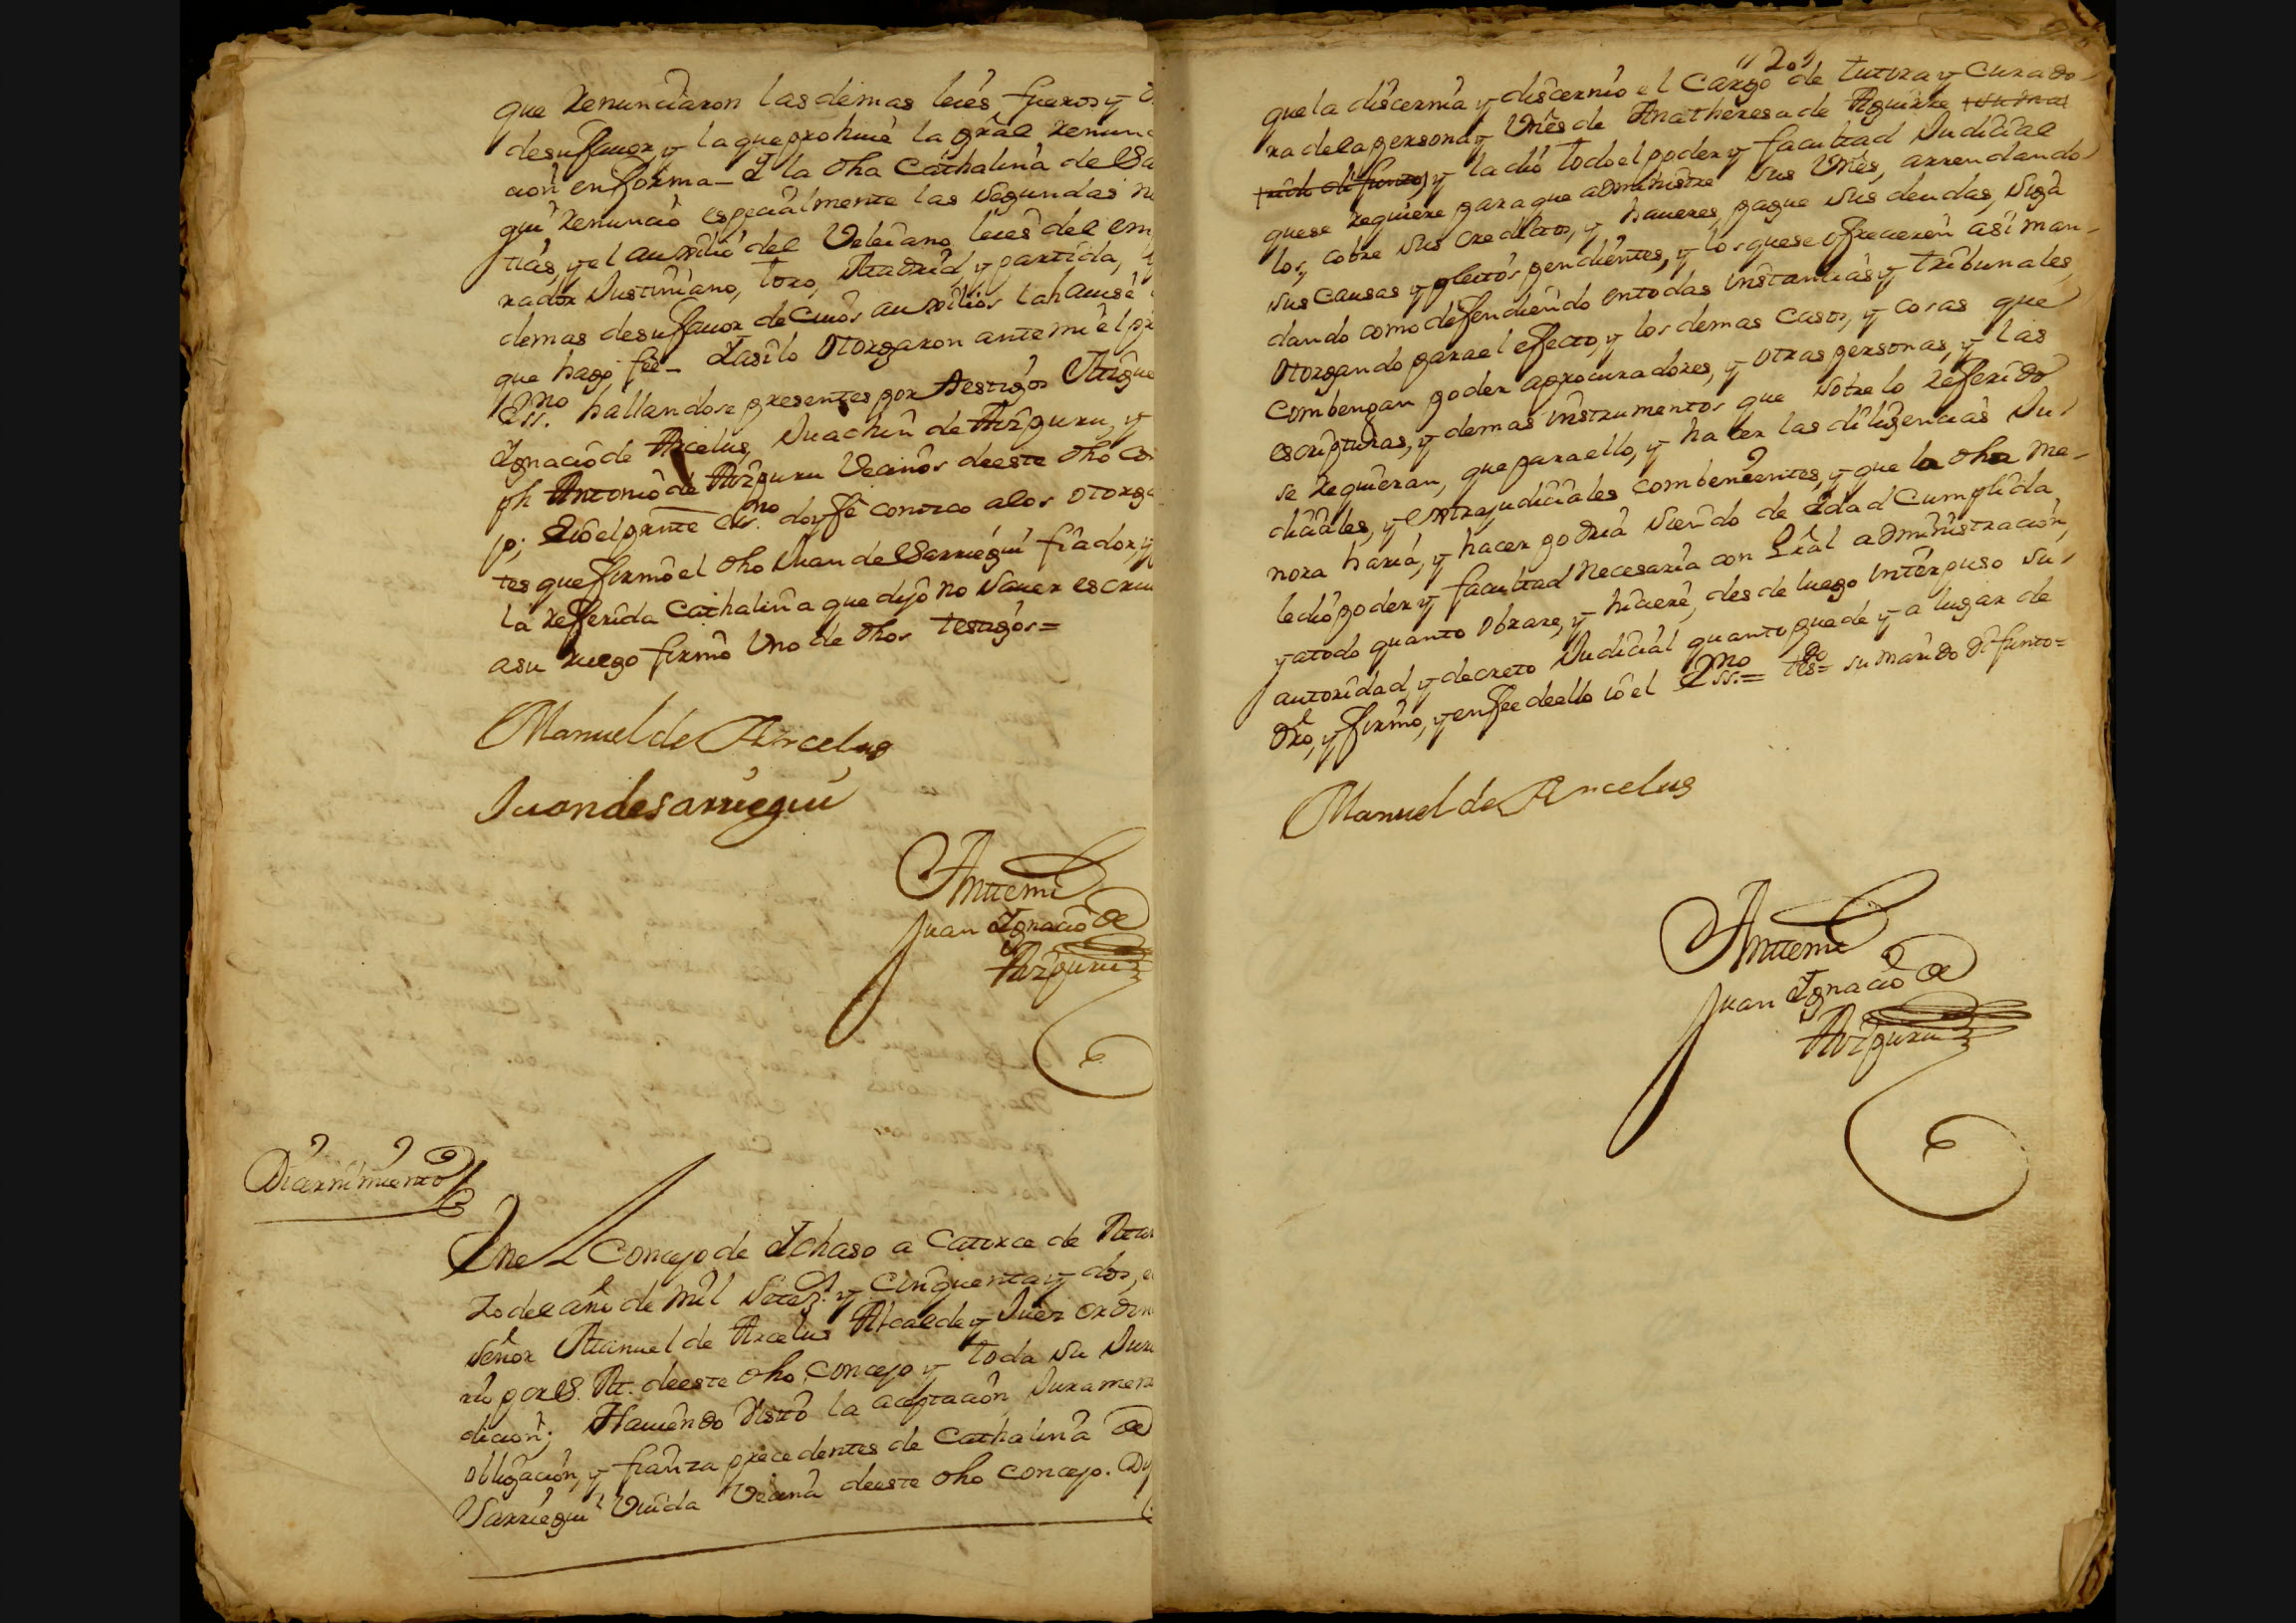 que renunciaron las demas leies, fueros y
de su ffavor y la que prohive la gral renun
cion en forma_ Y la dha Cathalina de Sa
gui renunció especialmente las segundas nu
cias, y el auxilio del Veleiano, leies del em
rador Justiniano, toro, Madrid, y partida, y
demas de su ffavor de cuios auxilios la havisé
que hago feé_ Y asi lo otorgaron ante mi el pr
essno hallandose presentes por testigos Migue
Ygnacio de Arcelus, Juachin de Aizpuru, y
ph Antonio de Aizpuru Vecinos de este dho co
jo; E io el prnte essno doy fé conozco a los otorga
tes que ffirmó el dho Juan de Sarriegui fiador, y
la refferida Cathalina que dijo no saver escriv
a su ruego firmó Uno de dhos testigos=
Manuel de Arcelus
Juan de sarriegui
Ante mi
Juan Ygnacio de
Aizpuru
Discernimiento
En el Concejo de Ychaso a Catorce de Mar
zo del año de mil setezs. y Cinquenta y dos, el
señor Manuel de Arcelus Alcalde y Juez ordin
rio por S. M. de este dho Concejo y toda su Juri
dicion; Haviendo visto la aceptacion, Juramen
obligacion, y fianza precedentes de Cathalina de
Sarriegui Viuda Vecina de este dho concejo. Dij
120
que la discernia y discernio el Cargo de tutora y Curado
ra de la persona y Vnes de Ana theresa de Aguirre
y la dió todo el poder y facultad Judicial
que se requiere para que administre sus Vnes, arrendando
los, cobre sus creditos, y haveres, pague sus deudas, siga
sus causas y pleitos pendientes, y los que se ofrecieren asi man-
dando como defendiendo en todas instancias y tribunales,
otorgando para el efecto, y los demas casos, y cosas que
combengan poder a procuradores, y otras personas, y las
escripturas, y demas instrumentos que sobre lo refferido
se requieran, que para ello, y hacer las diligencias Ju
diciales, y extrajudiciales combenientes, y que la dha me-
nora haria, y hacer podria siendo de Edad Cumplida
le dio poder y facultad necesaria con gral administracion,
y a todo quanto obrare, y hiciere, desde luego interpuso su
autoridad, y decreto Judicial quanto puede y a lugar de
dro, y ffirmó, y en ffee de ello io el essno= tdo= su marido difunto=
Manuel de Arcelus
Ante mi
Juan Ygnacio de
Aizpuru